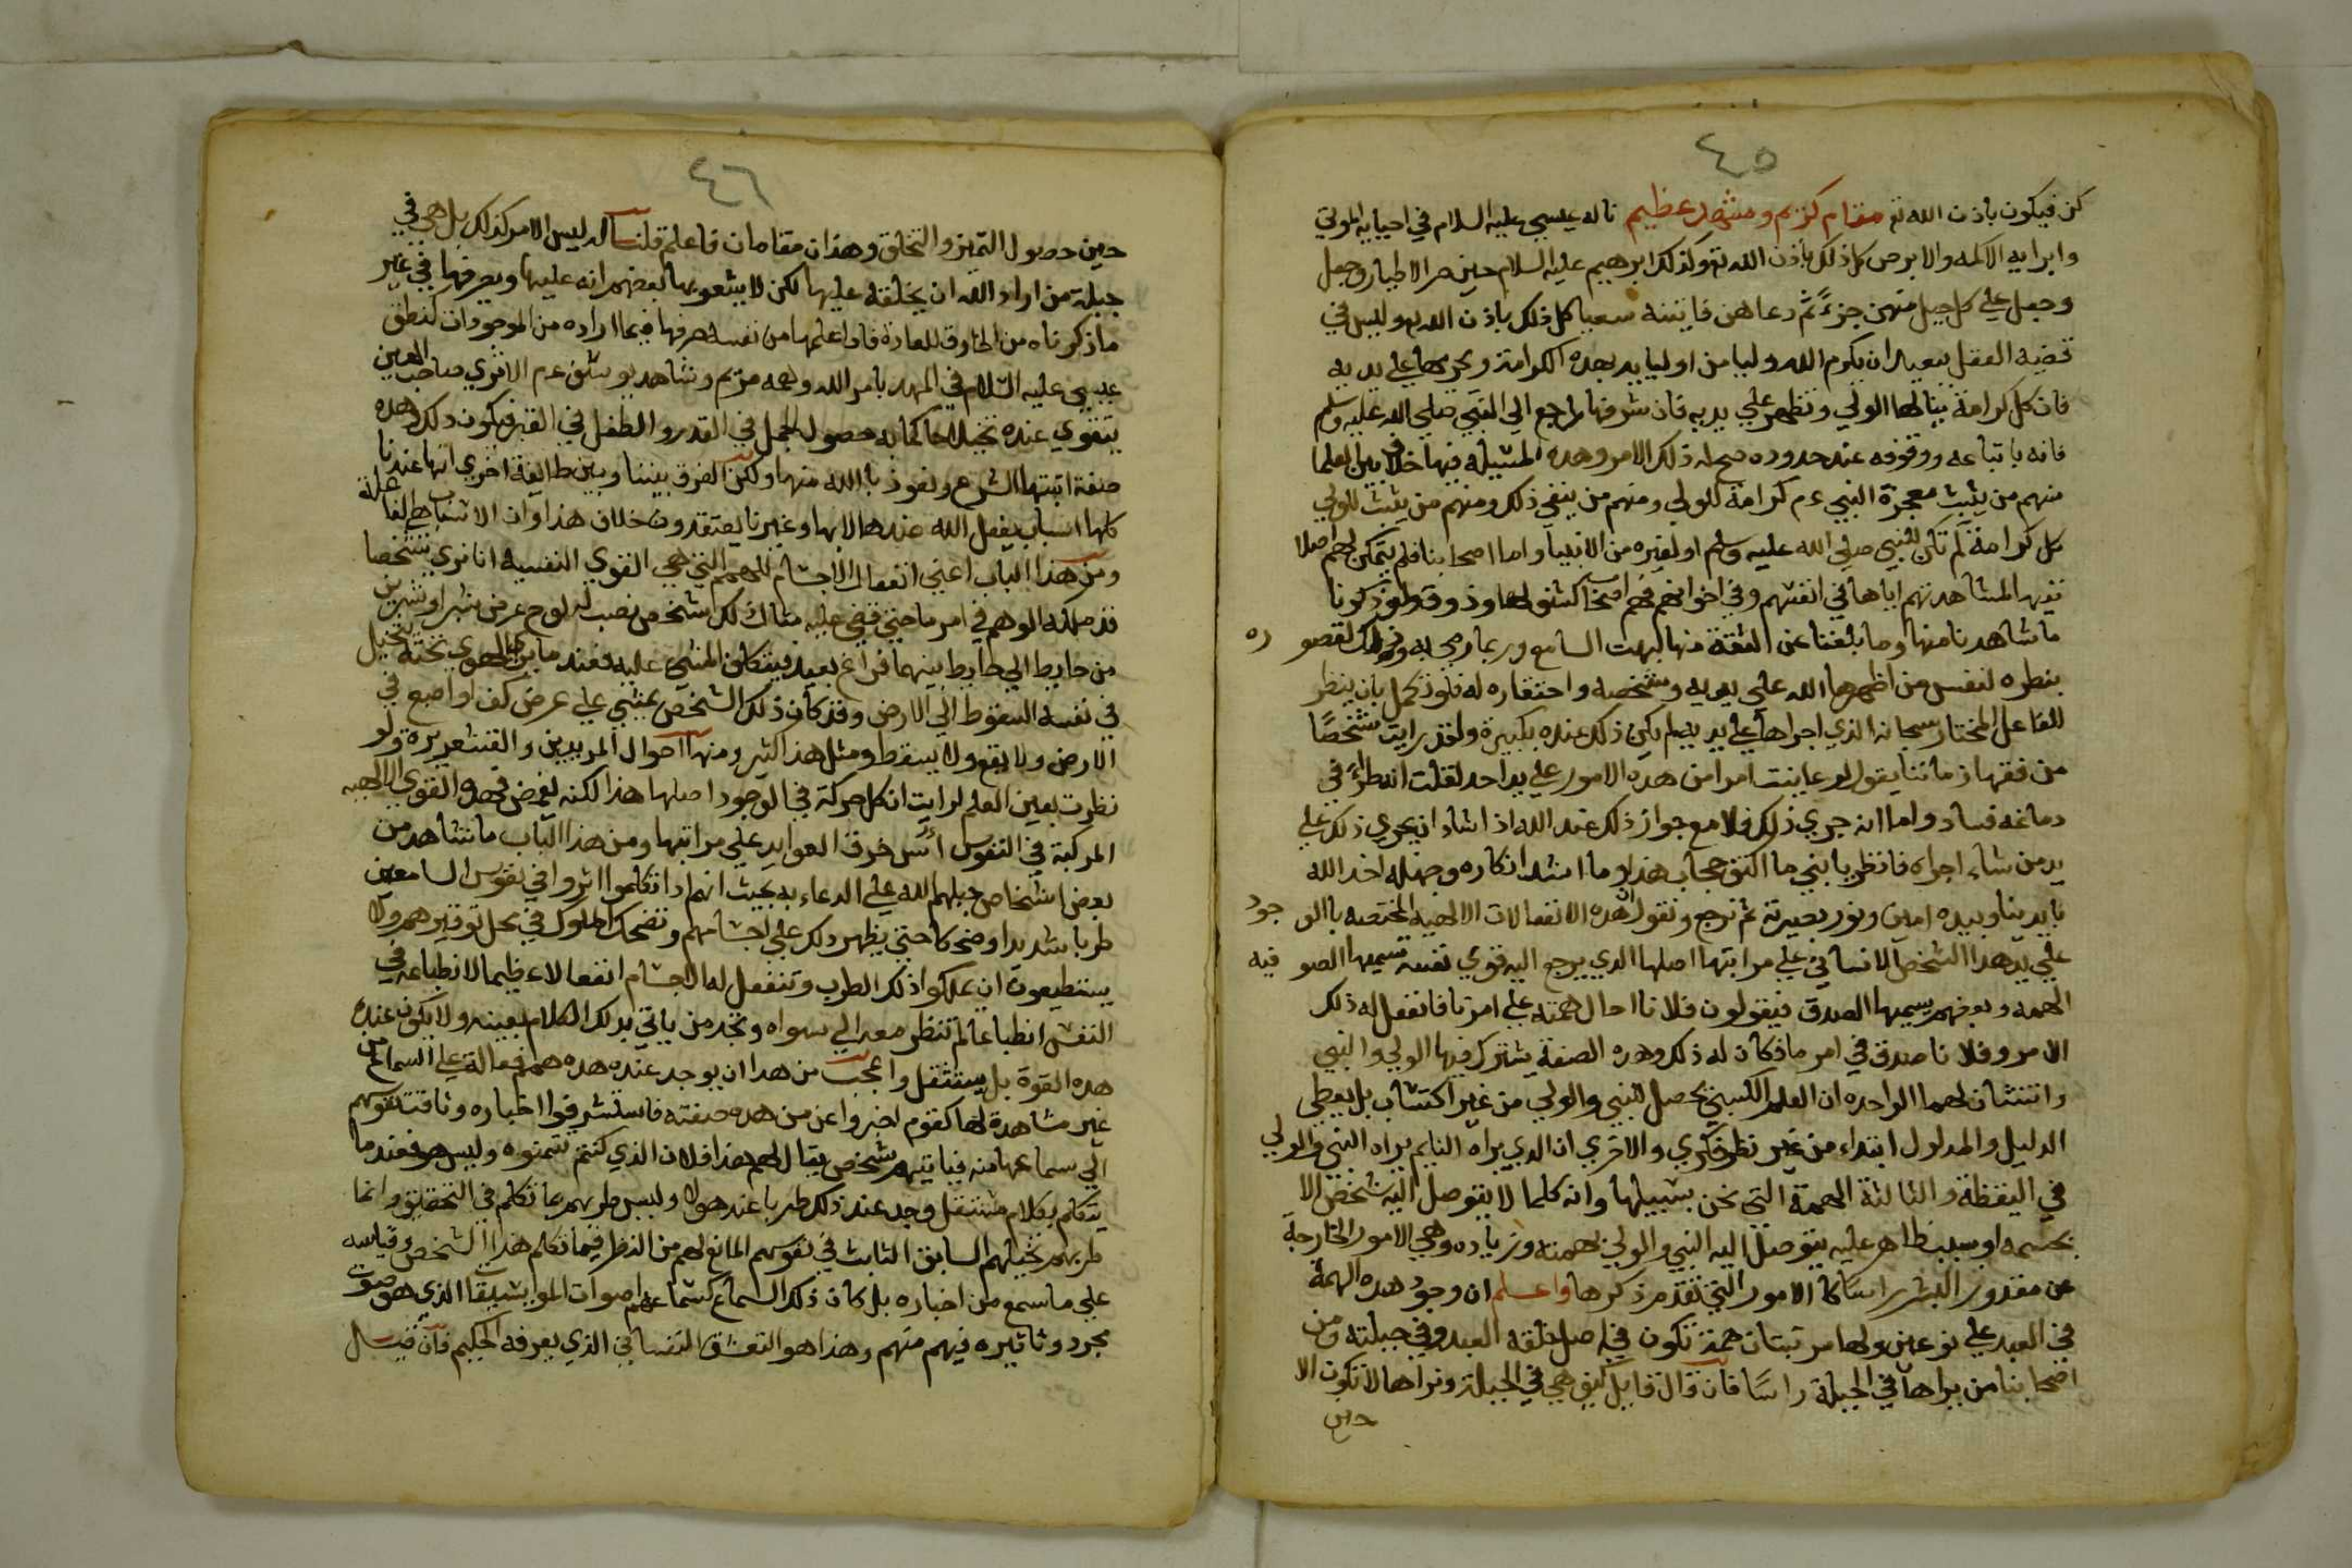 ٤٥
كن فيكون باذن الله تع مقام كريم ومشهد عظيم ناله عيسى عليه السلام في احيايه الموتى
وابرايه الاكمه والابرص كل ذلك باذن الله تع وكذلك ابرهيم عليه السلام حين صر الاطيار وجعل
وجعل علي كل جبل منهن جزءً ثم دعاهن فاتيننه سعيا كل ذلك باذن الله تع وليس في
قضية العقل ببعيد ان يكرم الله وليا من اوليايه بهذه الكرامة ويجريها علي يديه
فان كل كرامة ينالها الولي وتظهر علي يديه فان شرفها راجع الي النبي صلي الله عليه وسلم
فانه باتباعه ووقوفه عند حدوده صح له ذلك الامر وهذه المسيلة فيها خلاف بين العلما
منهم من يثبت معجزة النبي عم كرامة للولي ومنهم من ينفي ذلك ومنهم من يثبت للولي
كل كرامة لم تكن للنبي صلي الله عليه وسلم او لغيره من الانبيا واما اصحابنا فلم يتمكن لهم اصلا
نفيها لمشاهدتهم اياها في انفسهم وفي اخوانهم فهم اصحاب كشف لها وذوق ولو ذكرنا
ما شاهدنا منها وما بلغنا عن الثقة منها لبهت السامع وربما رمي به وذلك لقصوره
بنظره لنفس من اظهرها الله علي يديه وشخصه واحتقاره له فلو تكمل بان ينظر
للفاعل المختار سبحانه الذي اجراها علي يديه لم يكن ذلك عنده بكبيرة ولقد رايت شخصًا
من فقها زماننا يقول لو عاينت امرا من هذه الامور علي يد احد لقلت انه طراءً في
دماغه فساد واما انه جري ذلك فلا مع جواز ذلك عند الله اذا شاء ان يجري ذلك علي
يد من شاء اجراه فانظر يا بني ما اكثف حجاب هذا وما اشد انكاره وجهله اخذ الله
بايدينا وبيده امين ونور بصيرته ثم نرجع ونقول ان هذه الانفعالات الالهية المختصة بالوجود
علي يد هذا الشخص الانساني علي مراتبها اصلها الذي يرجع اليه قوي نفسه تسميها الصوفيه
الهمه وبعضهم يسميها الصدق فيقولون فلانا احال همته علي امر تا فانفعل له ذلك
الامر وفلانا صدق في امر ما فكان له ذلك وهذه الصفة يشترك فيها الولي والنبي
واثنتان لهما الواحدة ان العلم الكسبي يحصل للنبي والولي من غير اكتساب بل يعطي
الدليل والمدلول ابتداء من غير نظر فكري والاخري ان الذي يراه النايم يراه النبي والولي
في اليقظة والثالثة الهمة التي نحن بسبيلها وانه كلما لا يتوصل اليه شخص الا
بجسمه او بسبب ظاهر عليه يتوصل اليه النبي والولي بهمته وزيادة وهي الامور الخارجة
عن مقدور البشر راسًا كالامور التي تقدم ذكرها واعلم ان وجود هذه الهمة
في العبد علي نوعين ولها مرتبتان همة تكون في اصل خلقه العبد وفي جبلته ومن
اصحابنا من يراها في الجبلة راسًا فان قال قايل كيف هي في الجبلة ونراها لا تكون الا
حين
٤٦
حين حصول التميز والتخلق وهذان مقامان فاعلم قلنا له ليس الامر كذلك بل هي في
جبلة من اراد الله ان يخلقه عليها لكن لا يشعر بها بعضهم انه عليها ويصرفها في غير
ما ذكرناه من الخارق للعادة فاذا علمها من نفسه صرفها فيما اراده من الموجودات كنطق
عيسى عليه السلام في المهد بامر الله وهمه مريم وشاهد يوسف عم الا تري صاحب العين
يتقوي عنده تخيلا حاكما به حصول الجمل في القدر والطفل في القبر فيكون ذلك وهذه
صفة اثبتها الشرع ونعوذ بالله منها ولكن الفرق بيننا وبين طايفة اخري انها عندنا
كلها اسباب يفعل الله عندها لا بها وغيرنا يعتقدون خلاف هذا وان الاسباب هي الفاعلة
ومن هذا الباب اعني انفعال الاجسام للهمم التي هي القوي النفسية انا نري شخصا
قد ملكه الوهم في امر ما حتي قضي عليه مثال ذلك شخص نصب له لوح عرض شبر او شبرين
من حايط الي حايط بينهما فراغ بعيد فيتكلف المشي عليه فعند ما يري الهوي تحته يتخيل
في نفسه السقوط الي الارض وقد كان ذلك الشخص يمشي علي عرض كف او اصبع في
الارض ولا يقع ولا يسقط ومثل هذا كثير ومنها احوال المريدين والقشعريرة ولو
نظرت بعين العلم لرايت ان كل حركة في الوجود اصلها هذا لكنه يغمض فهذه القوي الالهيه
المركبة في النفوس اسُّ خرق العوايد علي مراتبها ومن هذا الباب ما نشاهد من
بعض اشخاص جبلهم الله علي الدعاء به بحيث انهم اذا تكلموا اثروا في نفوس السامعين
طربا شديدا وضحكا حتي يظهر ذلك علي اجسامهم وتضحك الملوك في محل توقيرهم ولا
يستطيعون ان يملكوا ذلك الطرب وتنفعل له الاجسام انفعالا عظيما لانطباعه في
النفس انطباعا لم تنظر معه الي سواه وتجد من ياتي بذلك الكلام بعينه ولا يكون عنده
هذه القوة بل يستثقل واعجب من هذا ان يوجد عنده هذه همم فعالة علي السماع من
غير مشاهدة لها كقوم اخبروا عن من هذه صفته فاستشرفوا اخباره وتاقت نفوسهم
الي سماعها منه فياتيهم شخص يقال لهم هذا فلان الذي كنتم تتمنوه وليس هو فعند ما
يتكلم بكلام مستثقل وجد عند ذلك طربا عند هولا وليس طربهم بما تكلم في التحقيق وانما
طربهم بتخيلهم السابق الثابت في نفوسهم المانع لهم من النظر فيما تكلم هذا الشخص وقياسه
علي ما سمع من اخباره بل كان ذلك السماع كسماعهم اصوات المواشيقا الذي هو صوت
مجرد وتاثيره فيهم منهم وهذا هو التعشق النفساني الذي يعرفه الحكيم فان قيل